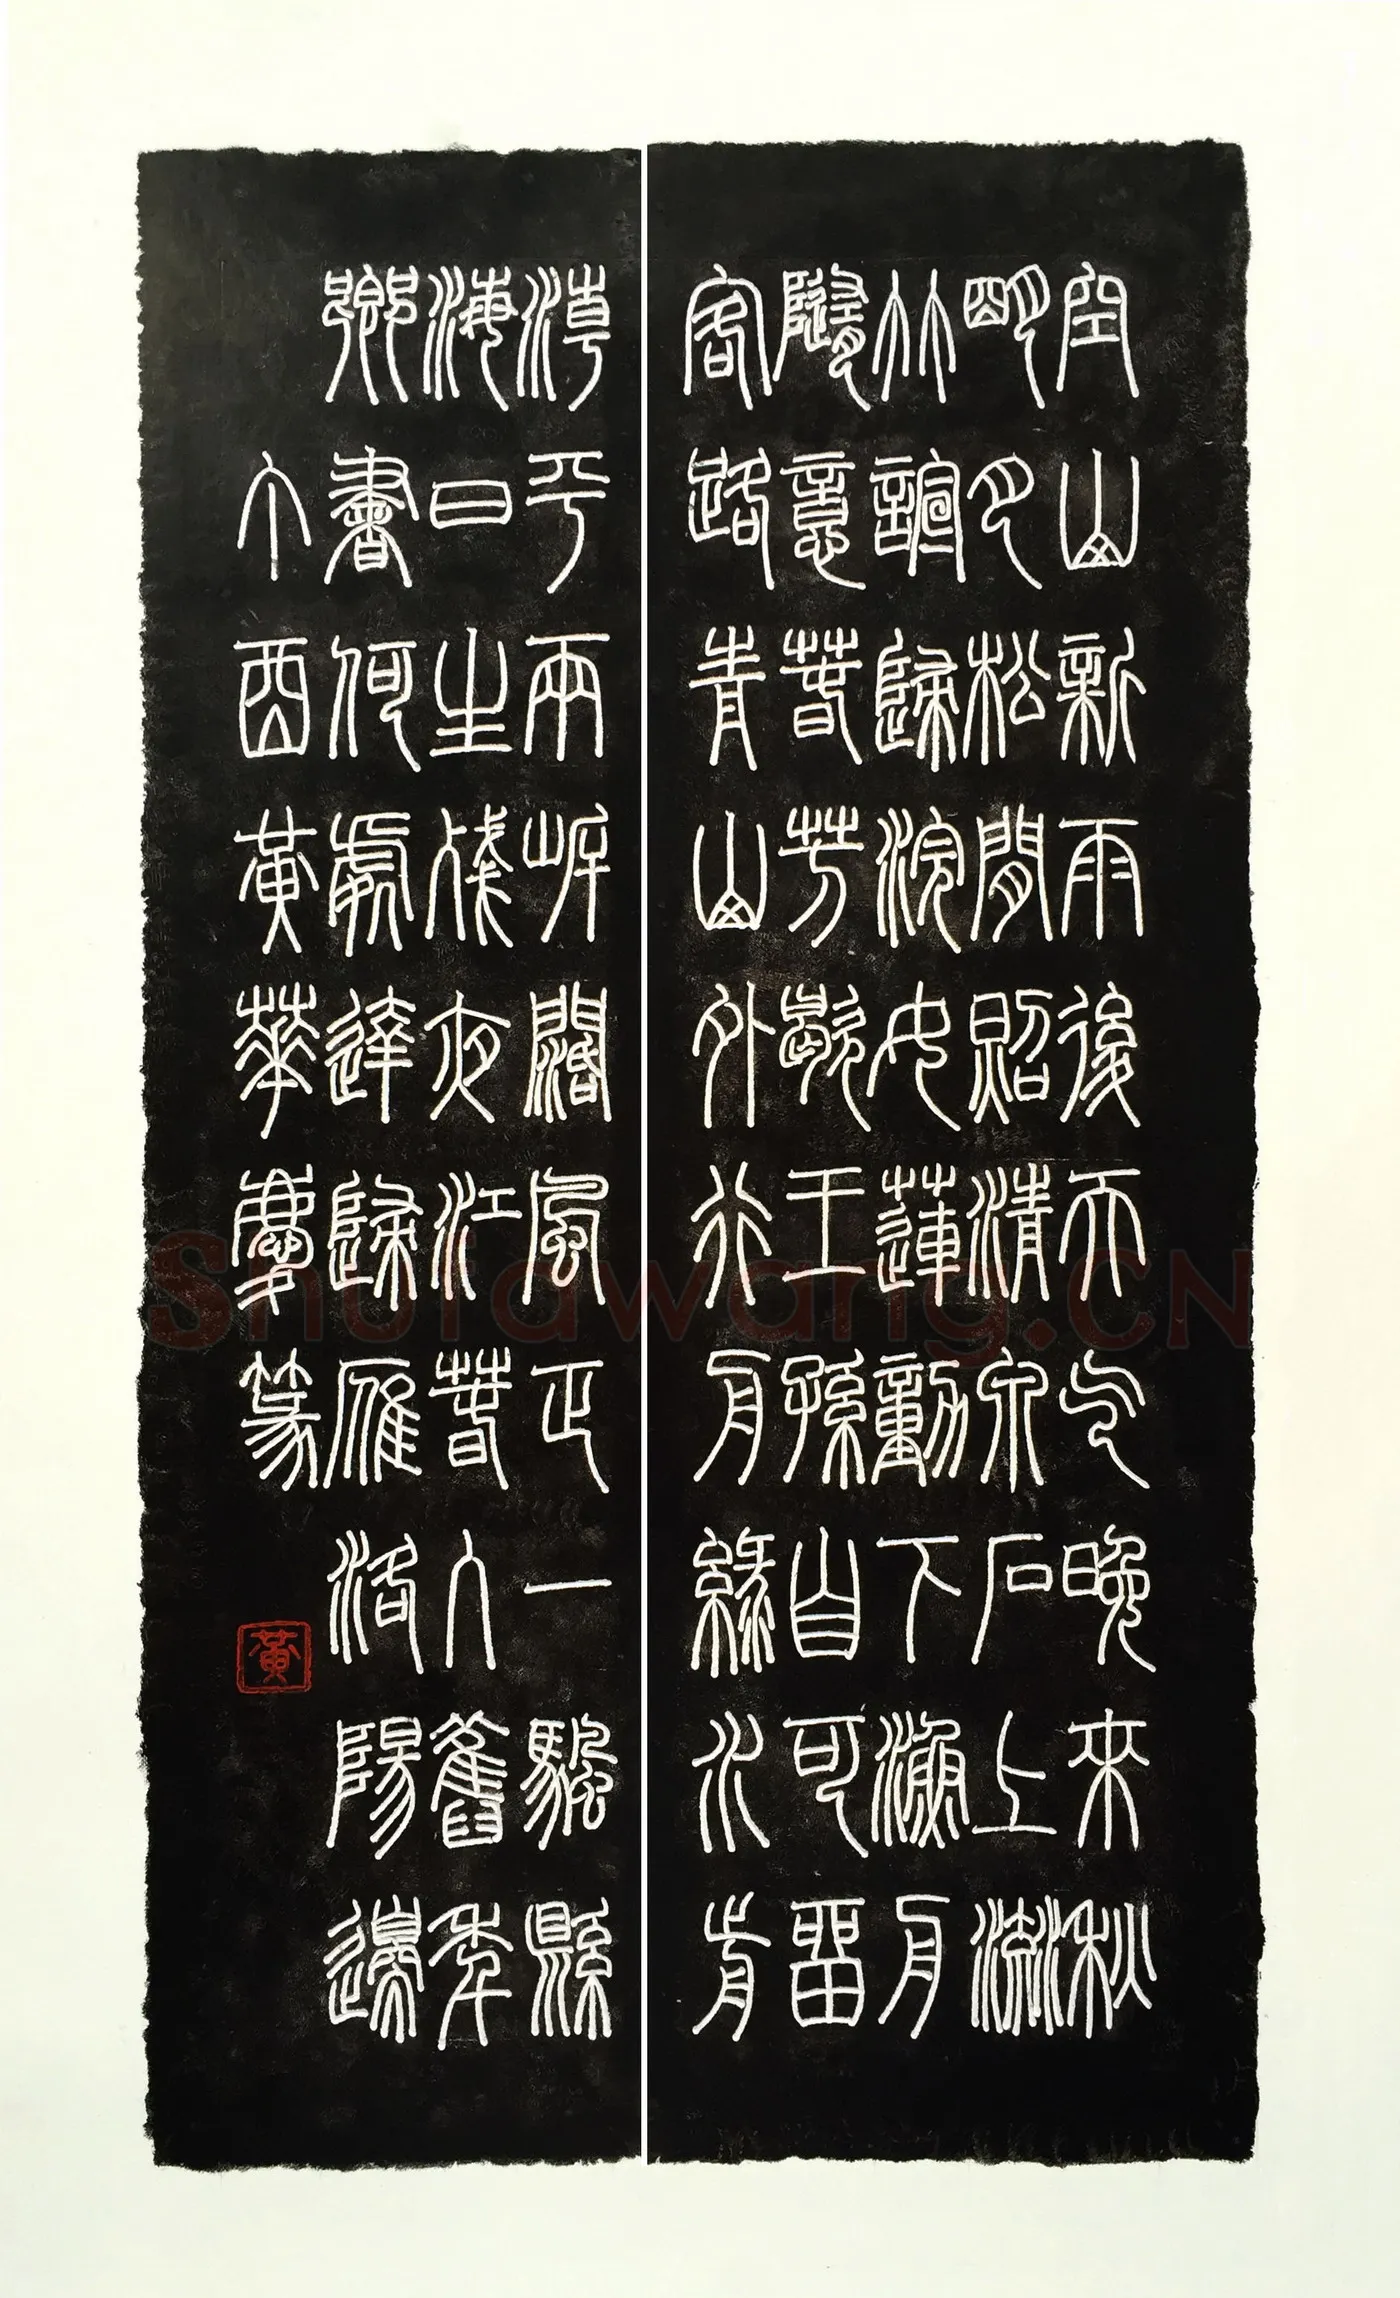 空山新雨後天气晚來秋
明月松間照清泉石上流
竹諠歸浣女蓮動下漁舟
隨意春芳歇王孫自可留
客路青山外行舟綠水前
潮平兩岸闊風正一颿縣
海日生殘夜江春入舊年
鄉書何處達歸雁洛陽邊
丁酉黃華慶篆
黃
Shufawang.CN